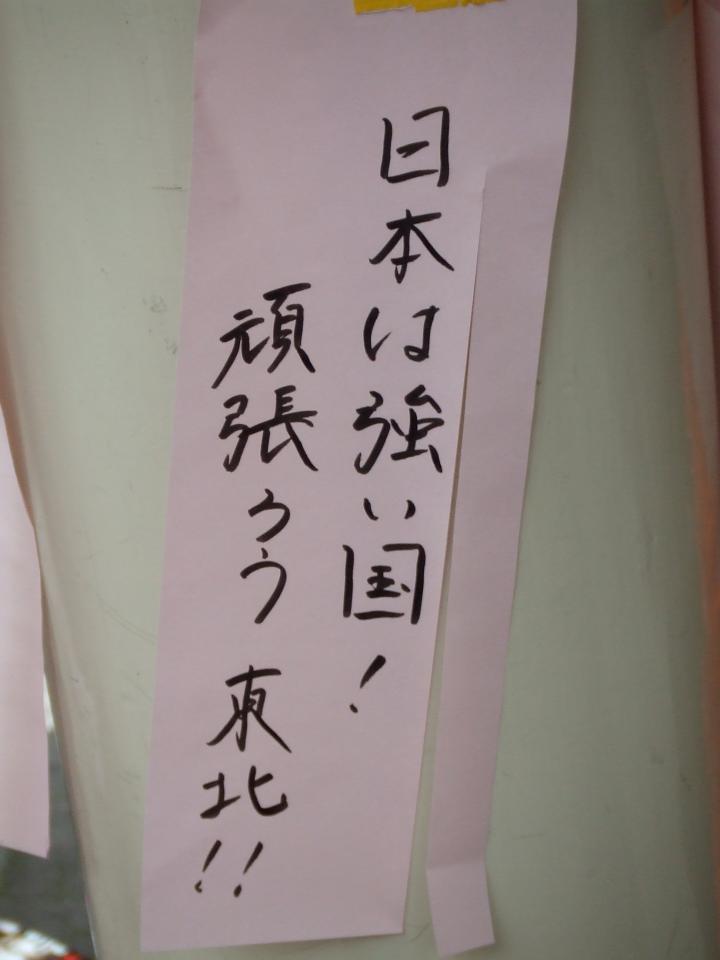 日本は強い国!
頑張ろう 東北!!